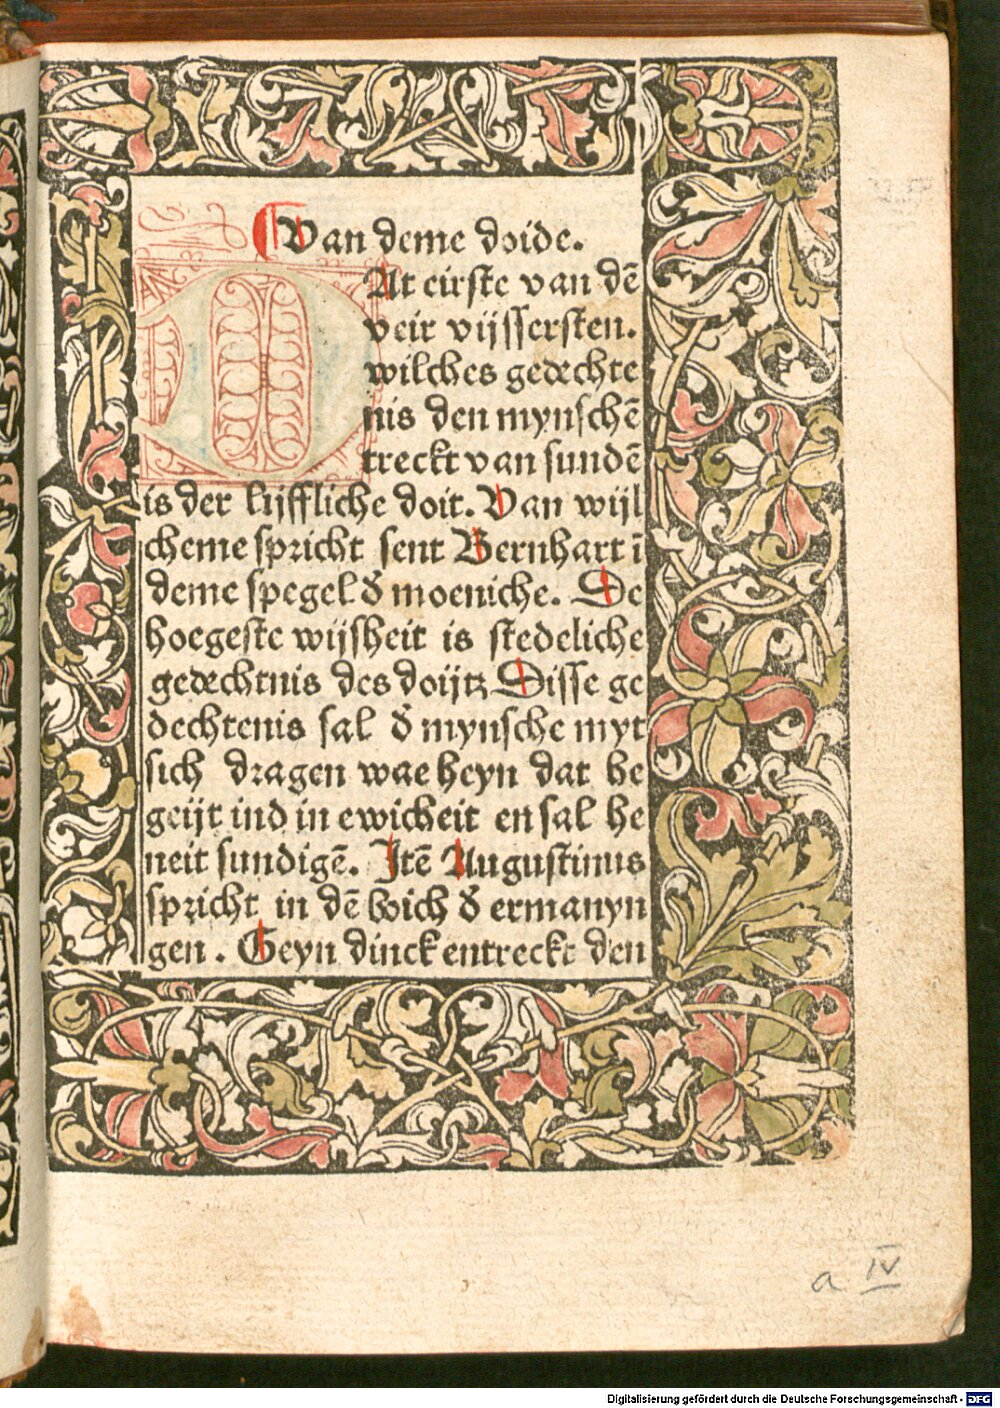 ¶ Van deme doide.
DAt eirste van dē
veir vijssersten.
wilches gedechte
nis den mynschē
treckt van sundē
is der lijffliche doit. Van wijl
cheme spricht sent Bernhart ī
deme spegel ð moeniche. De
hoegeste wijsheit is stedeliche
gedechtnis des doijtz Disse ge
dechtenis sal ð mynsche myt
sich dragen wae heyn dat he
geijt ind in ewicheit en sal he
neit sundigē. Jtē Augustinus
spricht in dē boich ð ermanyn
gen. Geyn dinck entreckt den
a IV
Digitalisierung gefördert durch die Deutsche Forschungsgemeinschaft - DFG